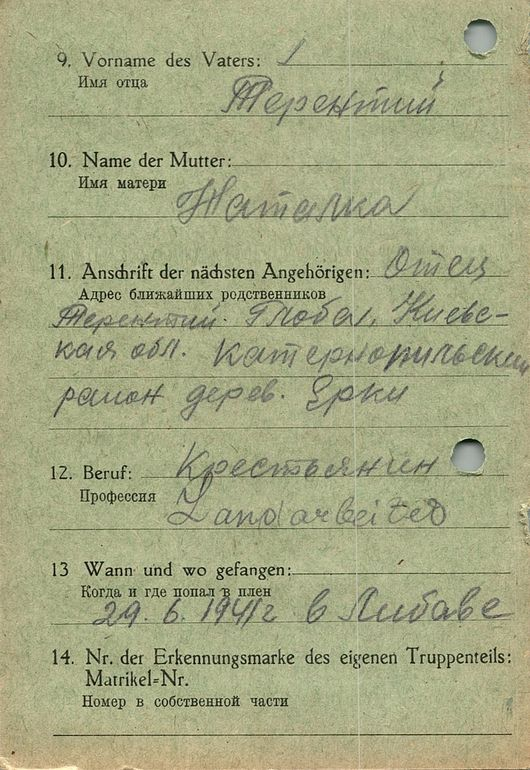 9. Vorname des Vaters:
Имя отца
Терентий
10. Name der Mutter:
Имя матери
Наталка
11. Anschrift der nächsten Angehörigen: Отец
Адрес ближайших родственников
Терентий Глоба, Киевс-
кая обл. Катернопильский
район дерев. Ерки
12. Beruf: Крестьянин
Профессия
Landarbeiter
13 Wann und wo gefangen:
Когда и где попал в плен
29. 6. 1941 г в Либаве
14. Nr. der Erkennungsmarke des eigenen Truppenteils:
Matrikel-Nr.
Номер в собственной части